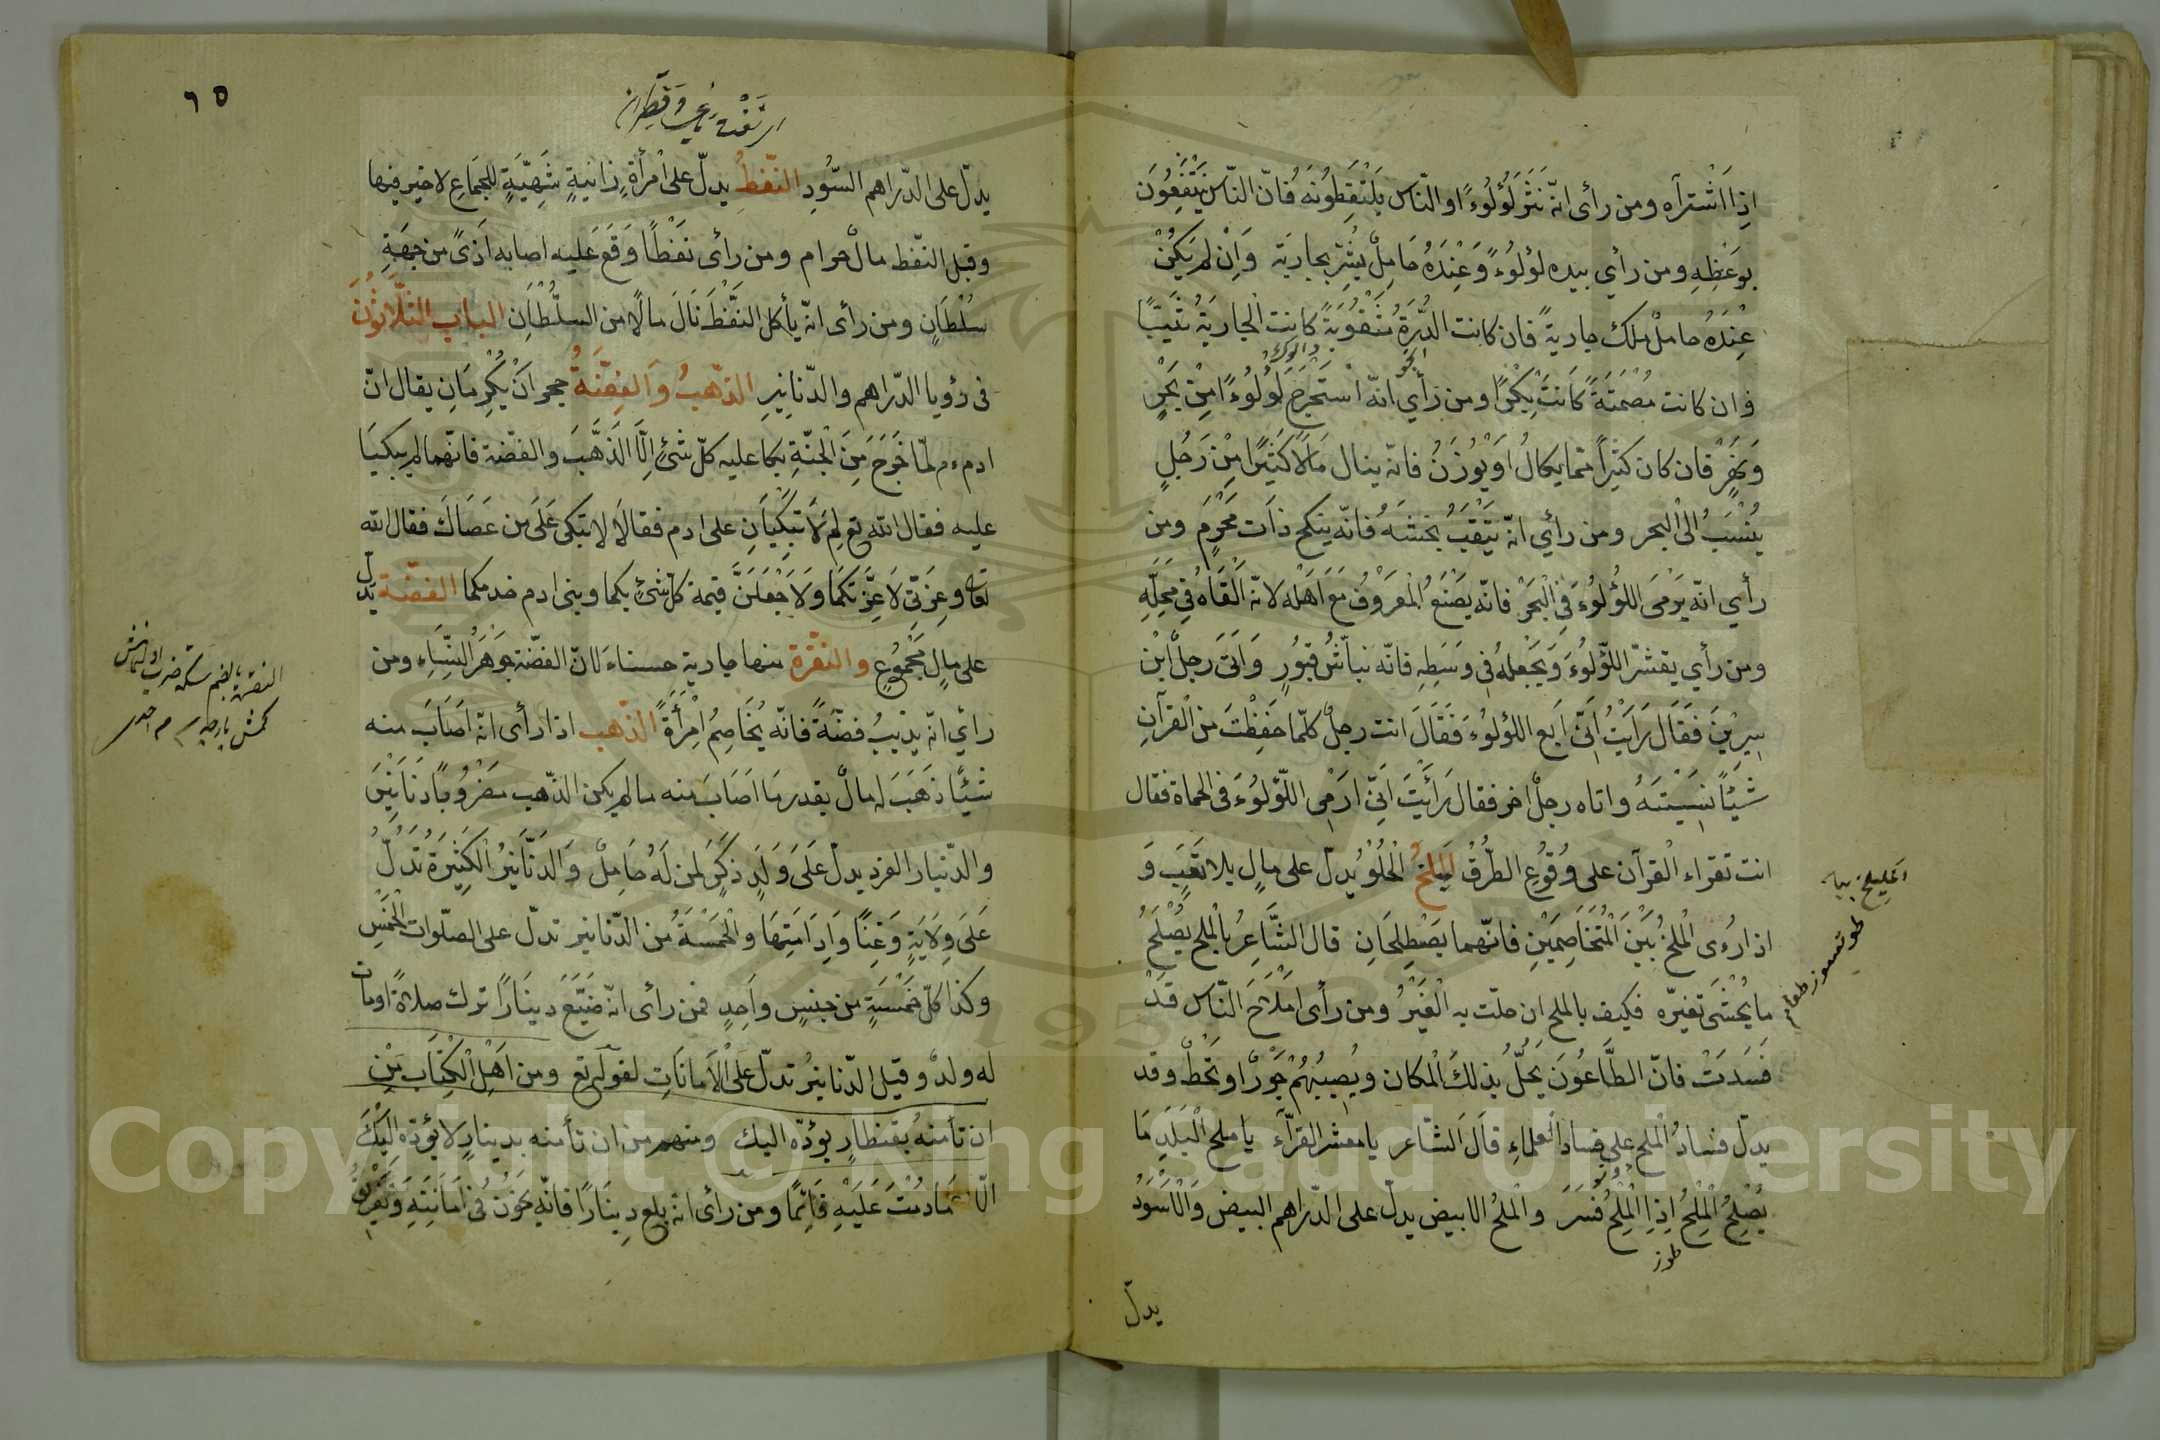 اذا اشتراه ومن رأى انّه نَثَرَ لُؤلُوءًا والنّاس يَلتَقِطُونَهُ فانّ النّاس يَنتَفِعُونَ
بوعَظِهِ ومن رأي بيده لؤلُوءً وَعِنْدَهُ حَامِلٌ يُبَشَّرُ بجارية وَاِنْ لم يَكُنْ
عِنْدَهُ حاملٌ ملك جاريةً فان كانت الدُّرَةُ مَثْقُوبَةً كانت الجارَيةُ ثيّبًا
وان كانت مُصْمَتَةً كانَتْ بِكْرًا ومن رَأي انّه اسْتَخْرَجَ لُؤلُوءًا مِنْ بَحْرٍ
وَنَهْرٍ فان كان كثيراً ممّا يكالُ اَوْ يُوزَنُ فانّه ينال مَالًا كثيرًا مِنْ رَجُلٍ
يُنْسَبُ الى البحر ومن رأي انّه يَثْقُبُ بخشبة فانّه ينكح ذات مَحْرَمٍ ومن
رأي انّه يَرْمى اللؤْلُوءَ فِى الْبَحَرْ فانّه يَصْنَعُ الْمَعروفَ مَعَ اَهْلِه لانّه اَلْقَاهُ فِى مَحَلِّهِ
ومن رأي يقشّر اللّؤلُوءَ وَيَجْعَلهُ فِى وَسَطِهِ فانّه نبّاشُ قبُورٍ وَاَتَى رجلٌ ابْنَ
سِيرِينَ فَقَال رَاَيْتُ اَنّى اَبلع اللؤلُوءَ فَقَالَ انت رجلٌ كلّما حَفِظْتَ من القرآن
شيْئًا نَسِيْتَهُ واتاه رجلٌ اخر فقال رَأَيْتُ اَنّى اَرمى اللّؤلُوءَ فى الحماة فقال
انت تقراء القرآن على وُقُوع الطُّرُقِ المِلحُ الحُلوُ يَدلّ على مالٍ بلا تَعَبٍ وَ
اذا رُءى الملحُ بَيْنَ الْمُتَخَاصِمَيْنِ فانّهما يَصْطِلحَانِ قال الشَّاعِرُ بالْمِلحِ يُصْلَحُ
ما يُخْشَى تغيّره فكيف بالملح ان حلّت به الغِيَرُ ومن رأى اَمْلَاحَ النّاس قَدْ
فَسَدَتْ فانّ الطَّاعُونَ يَحُلُّ بذلك الْمكان ويُصِيبُهُمْ جَوْرٌ او قَحْطٌ وقد
يدلّ فسادُ الملح على فساد العلماءِ قالَ الشّاعر يا معشر القرّآء يا ملح الْبَلَدِ مَا
يُصْلِحُ الْمِلحَ اِذا الْمِلحُ فُسَدَ والْملحُ الابيض يدلّ على الدّراهم البيض وَالْاَسْوَدُ
يدلّ
طوز
طوتسسوز طعام
٦٥
يدلّ على الدّراهم السّوُدِ النّفطُ يدلّ على امْرأة زانية شَهِيّةٍ للجماع لا خير فيها
وقيل النّفط مالٌ حرام ومن رأى نفطًا وَقَعَ عَلَيه اصابه اَذىً من جِهَةِ
سُلْطانٍ ومن رأى انّه يأكل النَّفْطَ نَالَ مالًا من السلْطَانِ الباب الثَّلَاثُونَ
فى رؤيا الدّراهم والدّنانِيرِ الذّهبُ وَالفِضَّةُ حجران يُكْرِمَانِ يقال انّ
ادم ءم لمّا خَرَجَ مِنَ الْجنّةِ بكا عليه كلّ شئ اِلَّا الذَّهَبَ والفضّة فانّهما لم يبكيَا
عليه فقال الله تع لِمَ لَا تَبْكِيَانِ على ادم فقالَا لا نبكى عَلَى مَن عَصَاكَ فقال الله
تعا وعِزّتِى لَاُعِزَّنّكُمَا وَلَاَجْعَلَنَّ قيمة كلّ شئ بكما وبنى ادم خدمكما الفضّة يَدلّ
على مالٍ مَجْمُوعٍ والنقرَة منها جارية حسناء لانّ الفضّة جوْهَرُ النِّسَاءِ ومن
رأي انّه يذيبُ فضّةً فانّه يُخَاصِمُ اِمْرَأةً الذّهب اذا رأى انّه اَصَابَ منه
شيئًا ذهَبَ له مالٌ بقدر ما اَصَابَ منه ما لم يكن الذّهب مضروبًا دَنَانيْرَ
والدّينار الفرد يدلّ عَلَى وَلَدٍ ذَكَرٍ لمن لَهُ حَامِلٌ وَالدَّنَانيرُ الكثيرَةُ تَدُلُّ
عَلَى وِلَايَةٍ وَغِنًا وَاِدَامَتِهَا والْخمْسَةُ من الدّنانير تدلّ على الصلّوات الْخَمْسِ
وكذا كلّ خَمْسَةٍ من جنسٍ واَحدٍ فمن رأى انّه ضَيّعَ دينارًا ترك صلاةً اومات
له ولدٌ وقيل الدّنانيرُ تدلّ على الْاَمَانَاتِ لقولّه تع ومن اَهْلِ الْكِتَابِ مَنْ
ان تأمنهُ بقنطارٍ يؤدّه اليك ومنهم من ان تأمنه بدينارٍ لا يؤدّه اِلَيْكَ
الّا مادُمْتَ عَلَيْهِ قَائِمًا ومن رأى انّه بلع دِينَارًا فانّه يَخُونُ فِى اَمَانَتِهِ